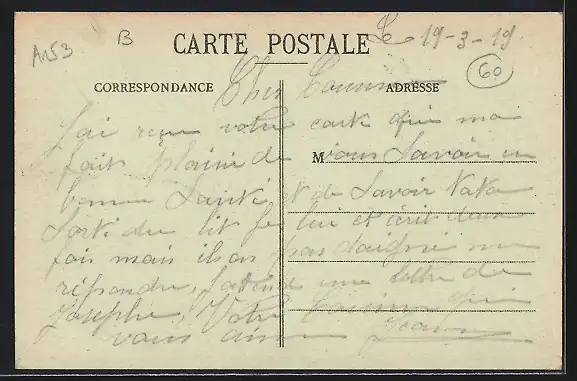 A153
B
CARTE POSTALE
Le 19-3-19
60
CORRESPONDANCE
ADRESSE
Cher Cousin
J'ai reçu votre carte qui ma
M
fait plaisir de vous savoir en
bonne Santé et de savoir Kaka
sorti du lit je lui et écrit deux
fois mais ils on pas daigné me
répondre, j'attend une lettre de
Josephe, Votre Cousine qui
vous aime